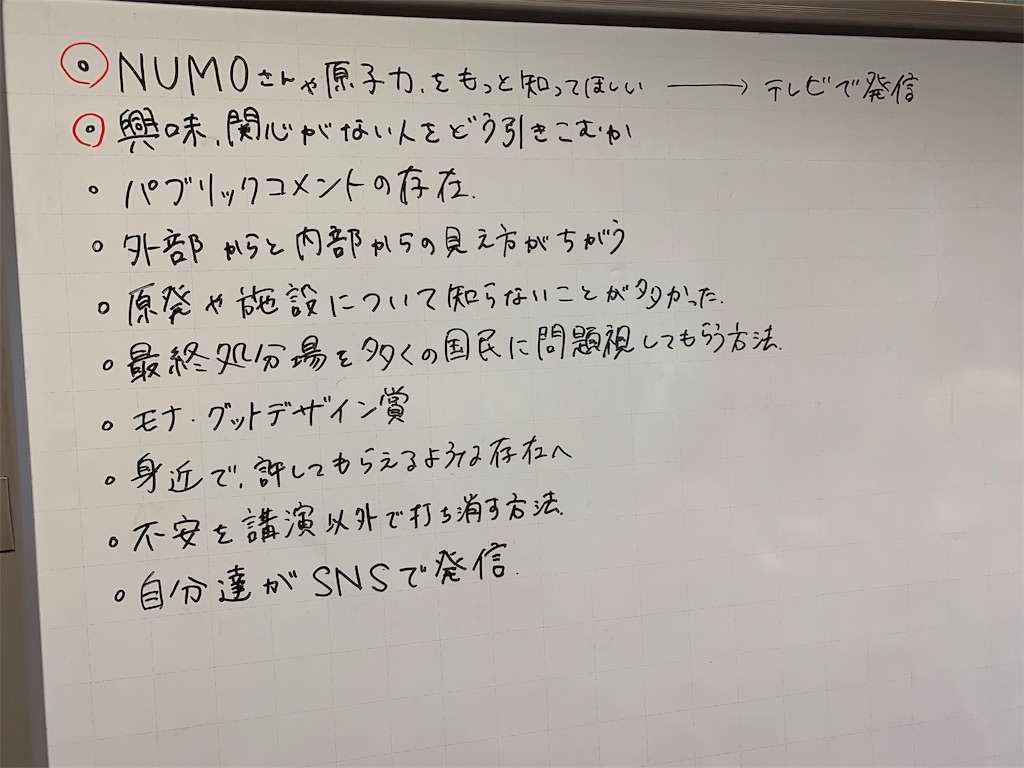 ◦ NUMOさんや原子力をもっと知ってほしい → テレビで発信
◦ 興味、関心がない人をどう引きこむか
◦ パブリックコメントの存在.
◦ 外部からと内部からの見え方がちがう
◦ 原発や施設について知らないことが多かった.
◦ 最終処分場を多くの国民に問題視してもらう方法.
◦ モナ・グットデザイン賞
◦ 身近で、許してもらえるような存在へ
◦ 不安を講演以外で打ち消す方法.
◦ 自分達がSNSで発信.